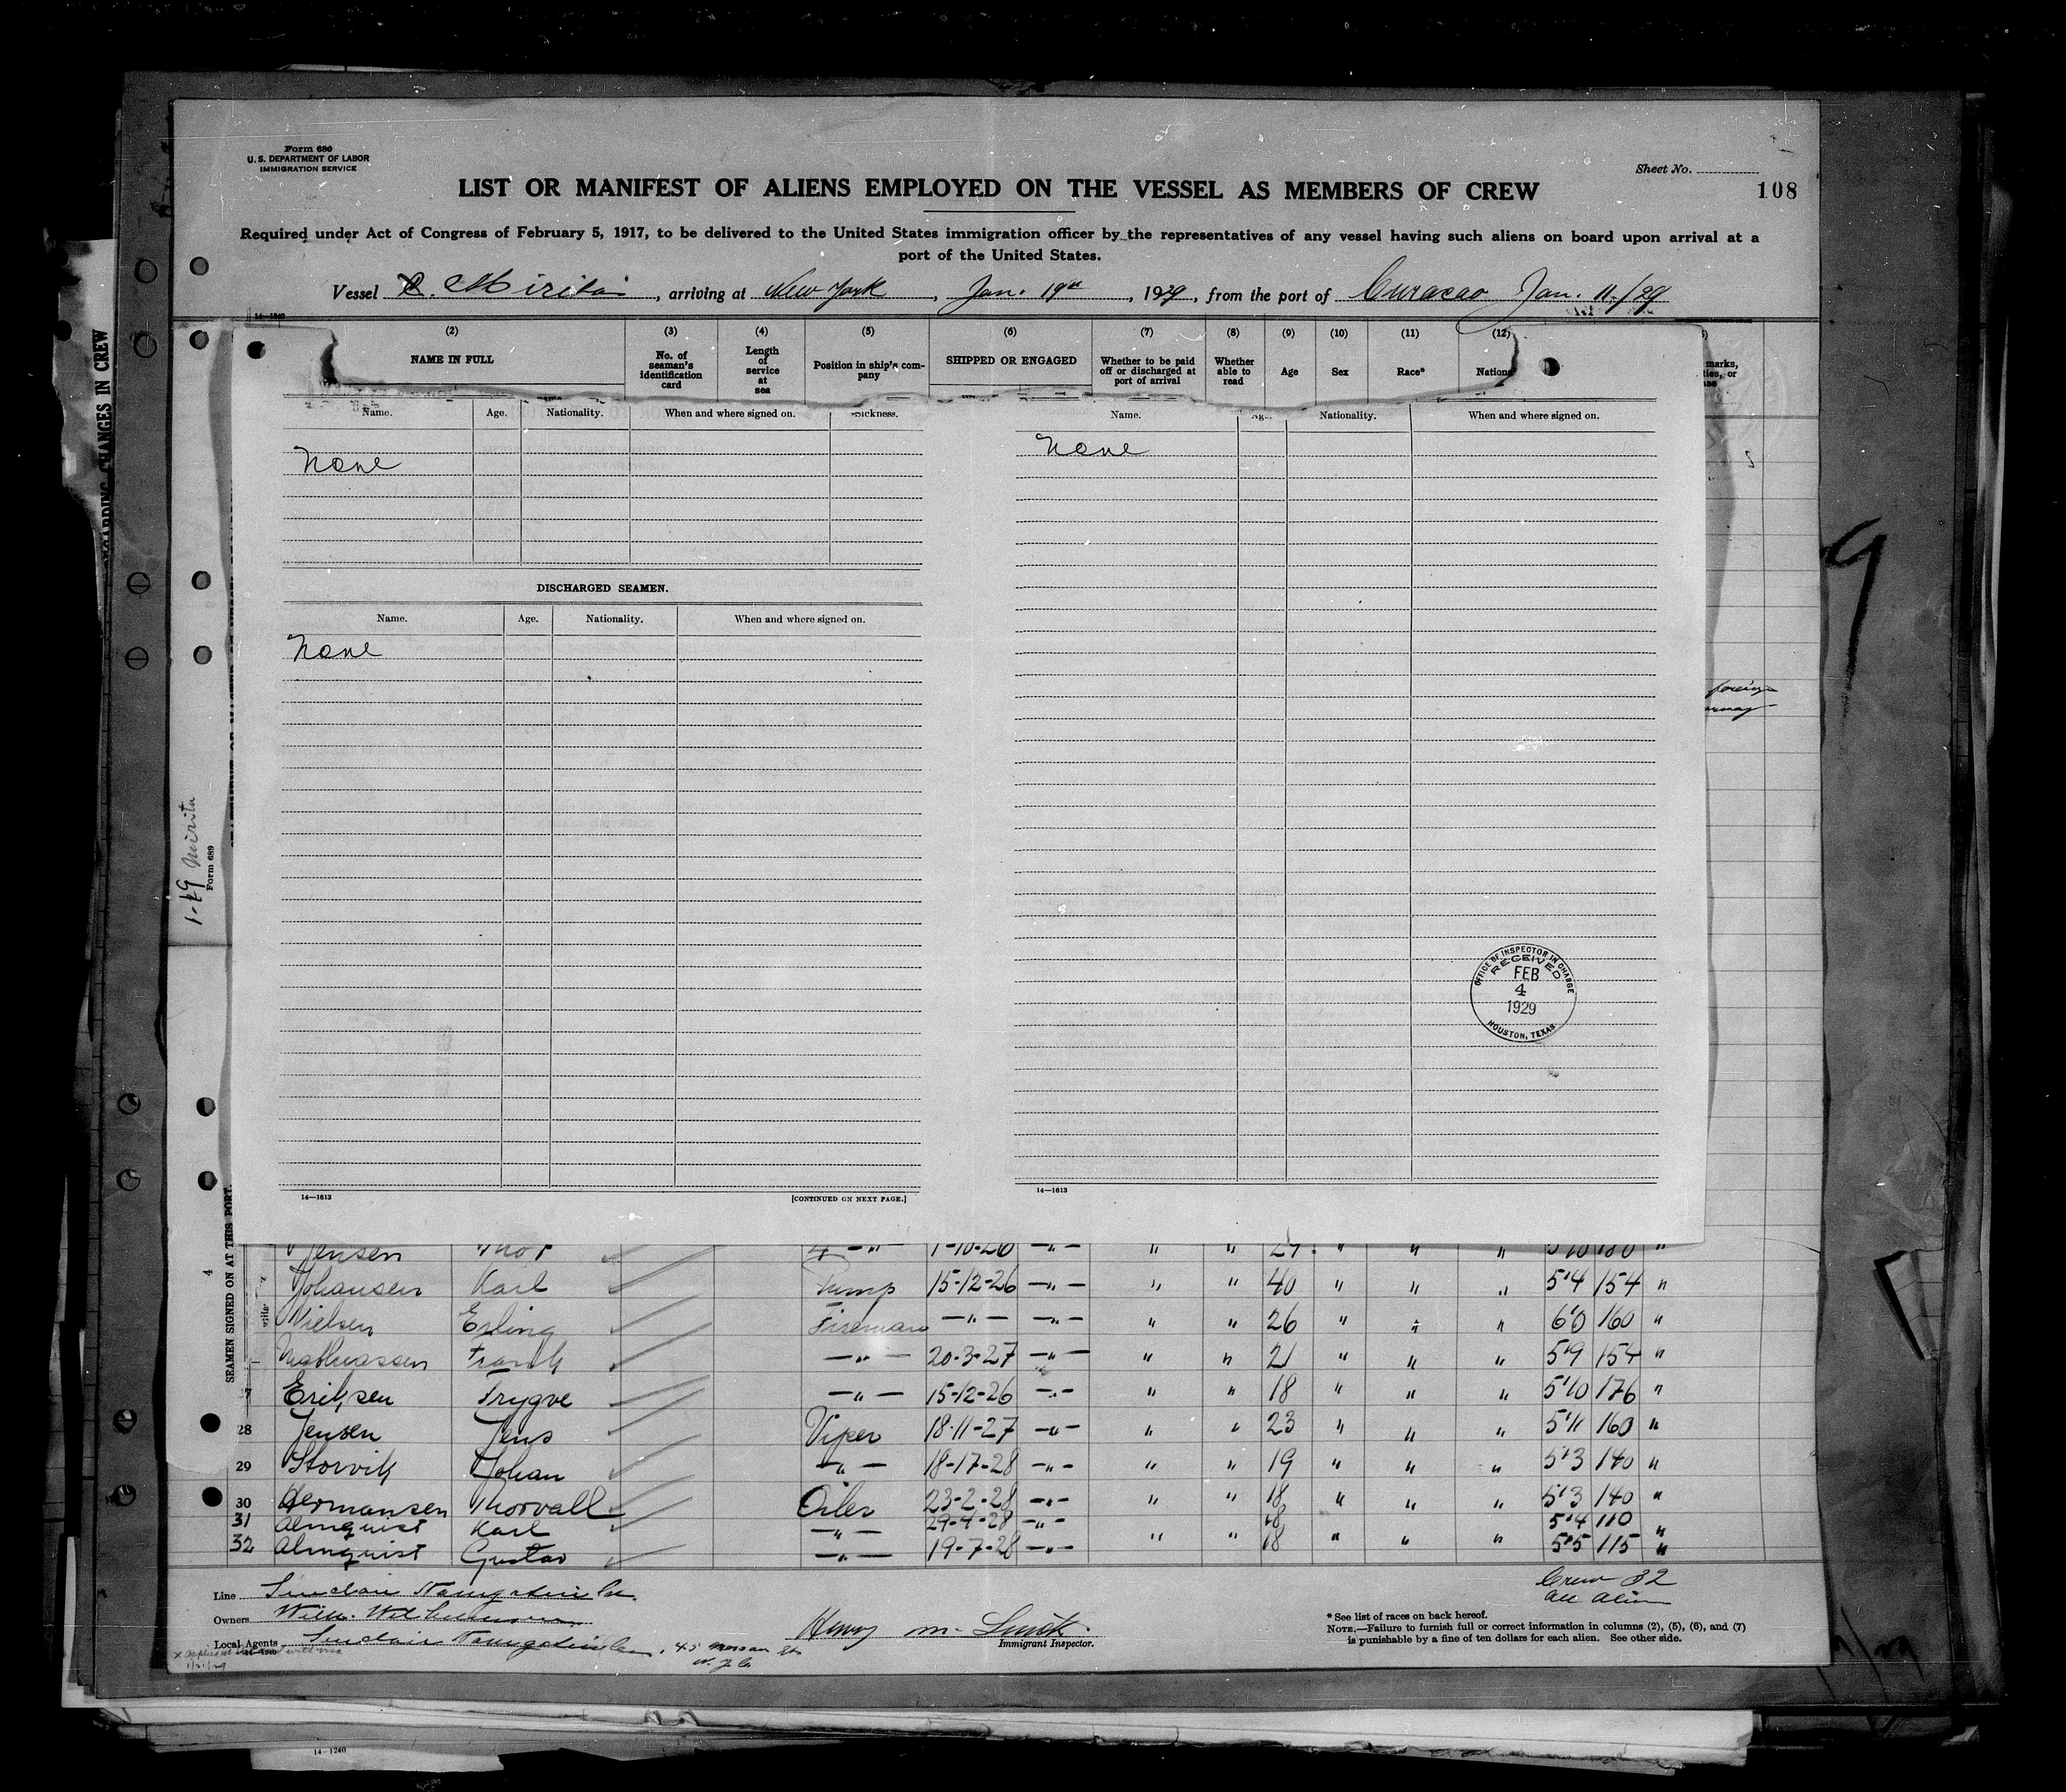 Form 680
U. S. DEPARTMENT OF LABOR
IMMIGRATION SERVICE
Sheet No.
108
LIST OR MANIFEST OF ALIENS EMPLOYED ON THE VESSEL AS MEMBERS OF CREW
Required under Act of Congress of February 5, 1917, to be delivered to the United States immigration officer by the representatives of any vessel having such aliens on board upon arrival at a
port of the United States.
Vessel Mirita, arriving at New York, Jan. 19th, 1929, from the port of Curacao Jan. 11/29
14—1240
(2) (3) (4) (5) (6) (7) (8) (9) (10) (11) (12)
NAME IN FULL No. of seaman's identification card Length of service at sea Position in ship's company SHIPPED OR ENGAGED Whether to be paid off or discharged at port of arrival Whether able to read Age Sex Race* Nation marks, ties, or
Name. Age. Nationality. When and where signed on. Sickness.
None
DISCHARGED SEAMEN.
Name. Age. Nationality. When and where signed on.
None
14—1613 [CONTINUED ON NEXT PAGE.]
Name. Nationality. When and where signed on.
None
OFFICE OF INSPECTOR IN CHARGE
RECEIVED
FEB
4
1929
HOUSTON, TEXAS
14—1613
CHANGES IN CREW
1-19 Mirita
Form 689
SEAMEN SIGNED ON AT THIS PORT.
4
9
foreign
Jensen Thor 4 —"— 1-10-26 —"— " " 27 " " " 5'10 180 "
Johansen Karl Pump 15-12-26 —"— " " 40 " " " 5'4 154 "
Nielsen Erling Fireman —"— —"— " " 26 " " " 6'0 160 "
Mathiassen Frank —"— 20-3-27 —"— " " 21 " " " 5'9 154 "
7 Eriksen Trygve —"— 15-12-26 —"— " " 18 " " " 5'10 176 "
28 Jensen Jens Viper 18-11-27 —"— " " 23 " " " 5'11 160 "
29 Storvik Johan —"— 18-17-28 —"— " " 19 " " " 5'3 140 "
30 Hermansen Thorvall Oiler 23-2-28 —"— " " 18 " " " 5'3 140 "
31 Almquist Karl —"— 29-4-28 —"— 18 5'4 110 "
32 Almquist Gustav —"— 19-7-28 —"— " " 18 " " " 5'5 115 "
Crew 32
All Alien
Line Sinclair Navigation Co.
Owners Wilh. Wilhelmsen
Local Agents Sinclair Navigation Co., 45 Nassau St.
N. Y. C.
Henry M.
Immigrant Inspector.
* See list of races on back hereof.
NOTE.—Failure to furnish full or correct information in columns (2), (5), (6), and (7)
is punishable by a fine of ten dollars for each alien. See other side.
14—1240
1/21/29
14—1240